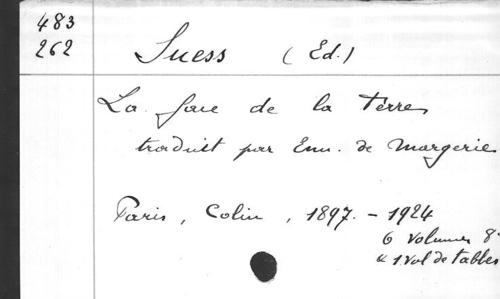 483
262
Suess (Ed.)
La face de la Terre
traduit par Emm. de Margerie
Paris, Colin, 1897. - 1924
6 volumes 8°
& 1 vol de tables